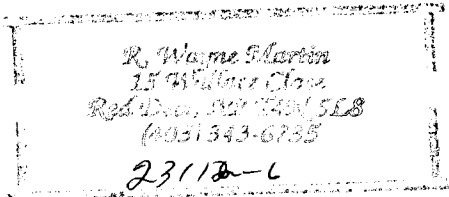 R. Wayne Martin
15 Wallace Close
Red Deer, T4N 5L8
(403) 343-6735